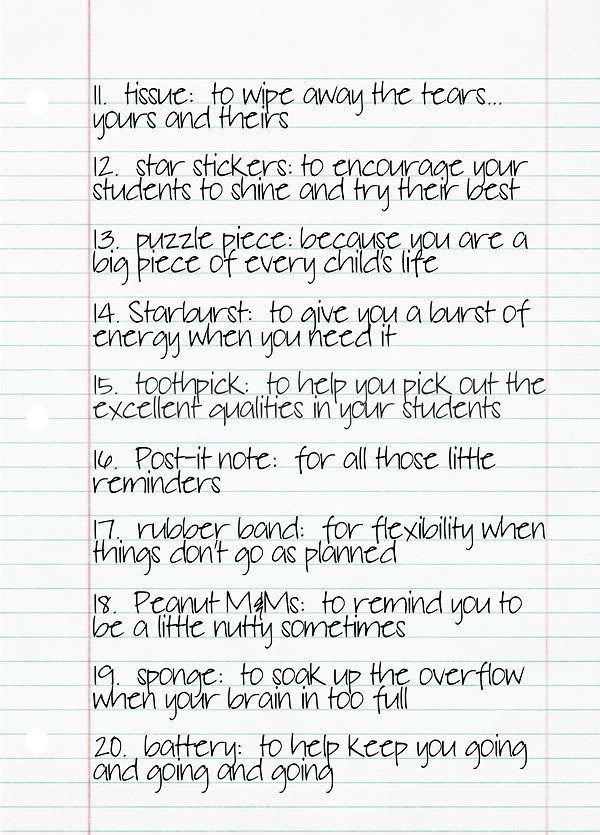 11. tissue: to wipe away the tears...
yours and theirs
12. star stickers: to encourage your
students to shine and try their best
13. puzzle piece: because you are a
big piece of every child's life
14. Starburst: to give you a burst of
energy when you need it
15. toothpick: to help you pick out the
excellent qualities in your students
16. Post-it note: for all those little
reminders
17. rubber band: for flexibility when
things don't go as planned
18. Peanut M&Ms: to remind you to
be a little nutty sometimes
19. sponge: to soak up the overflow
when your brain in too full
20. battery: to help keep you going
and going and going